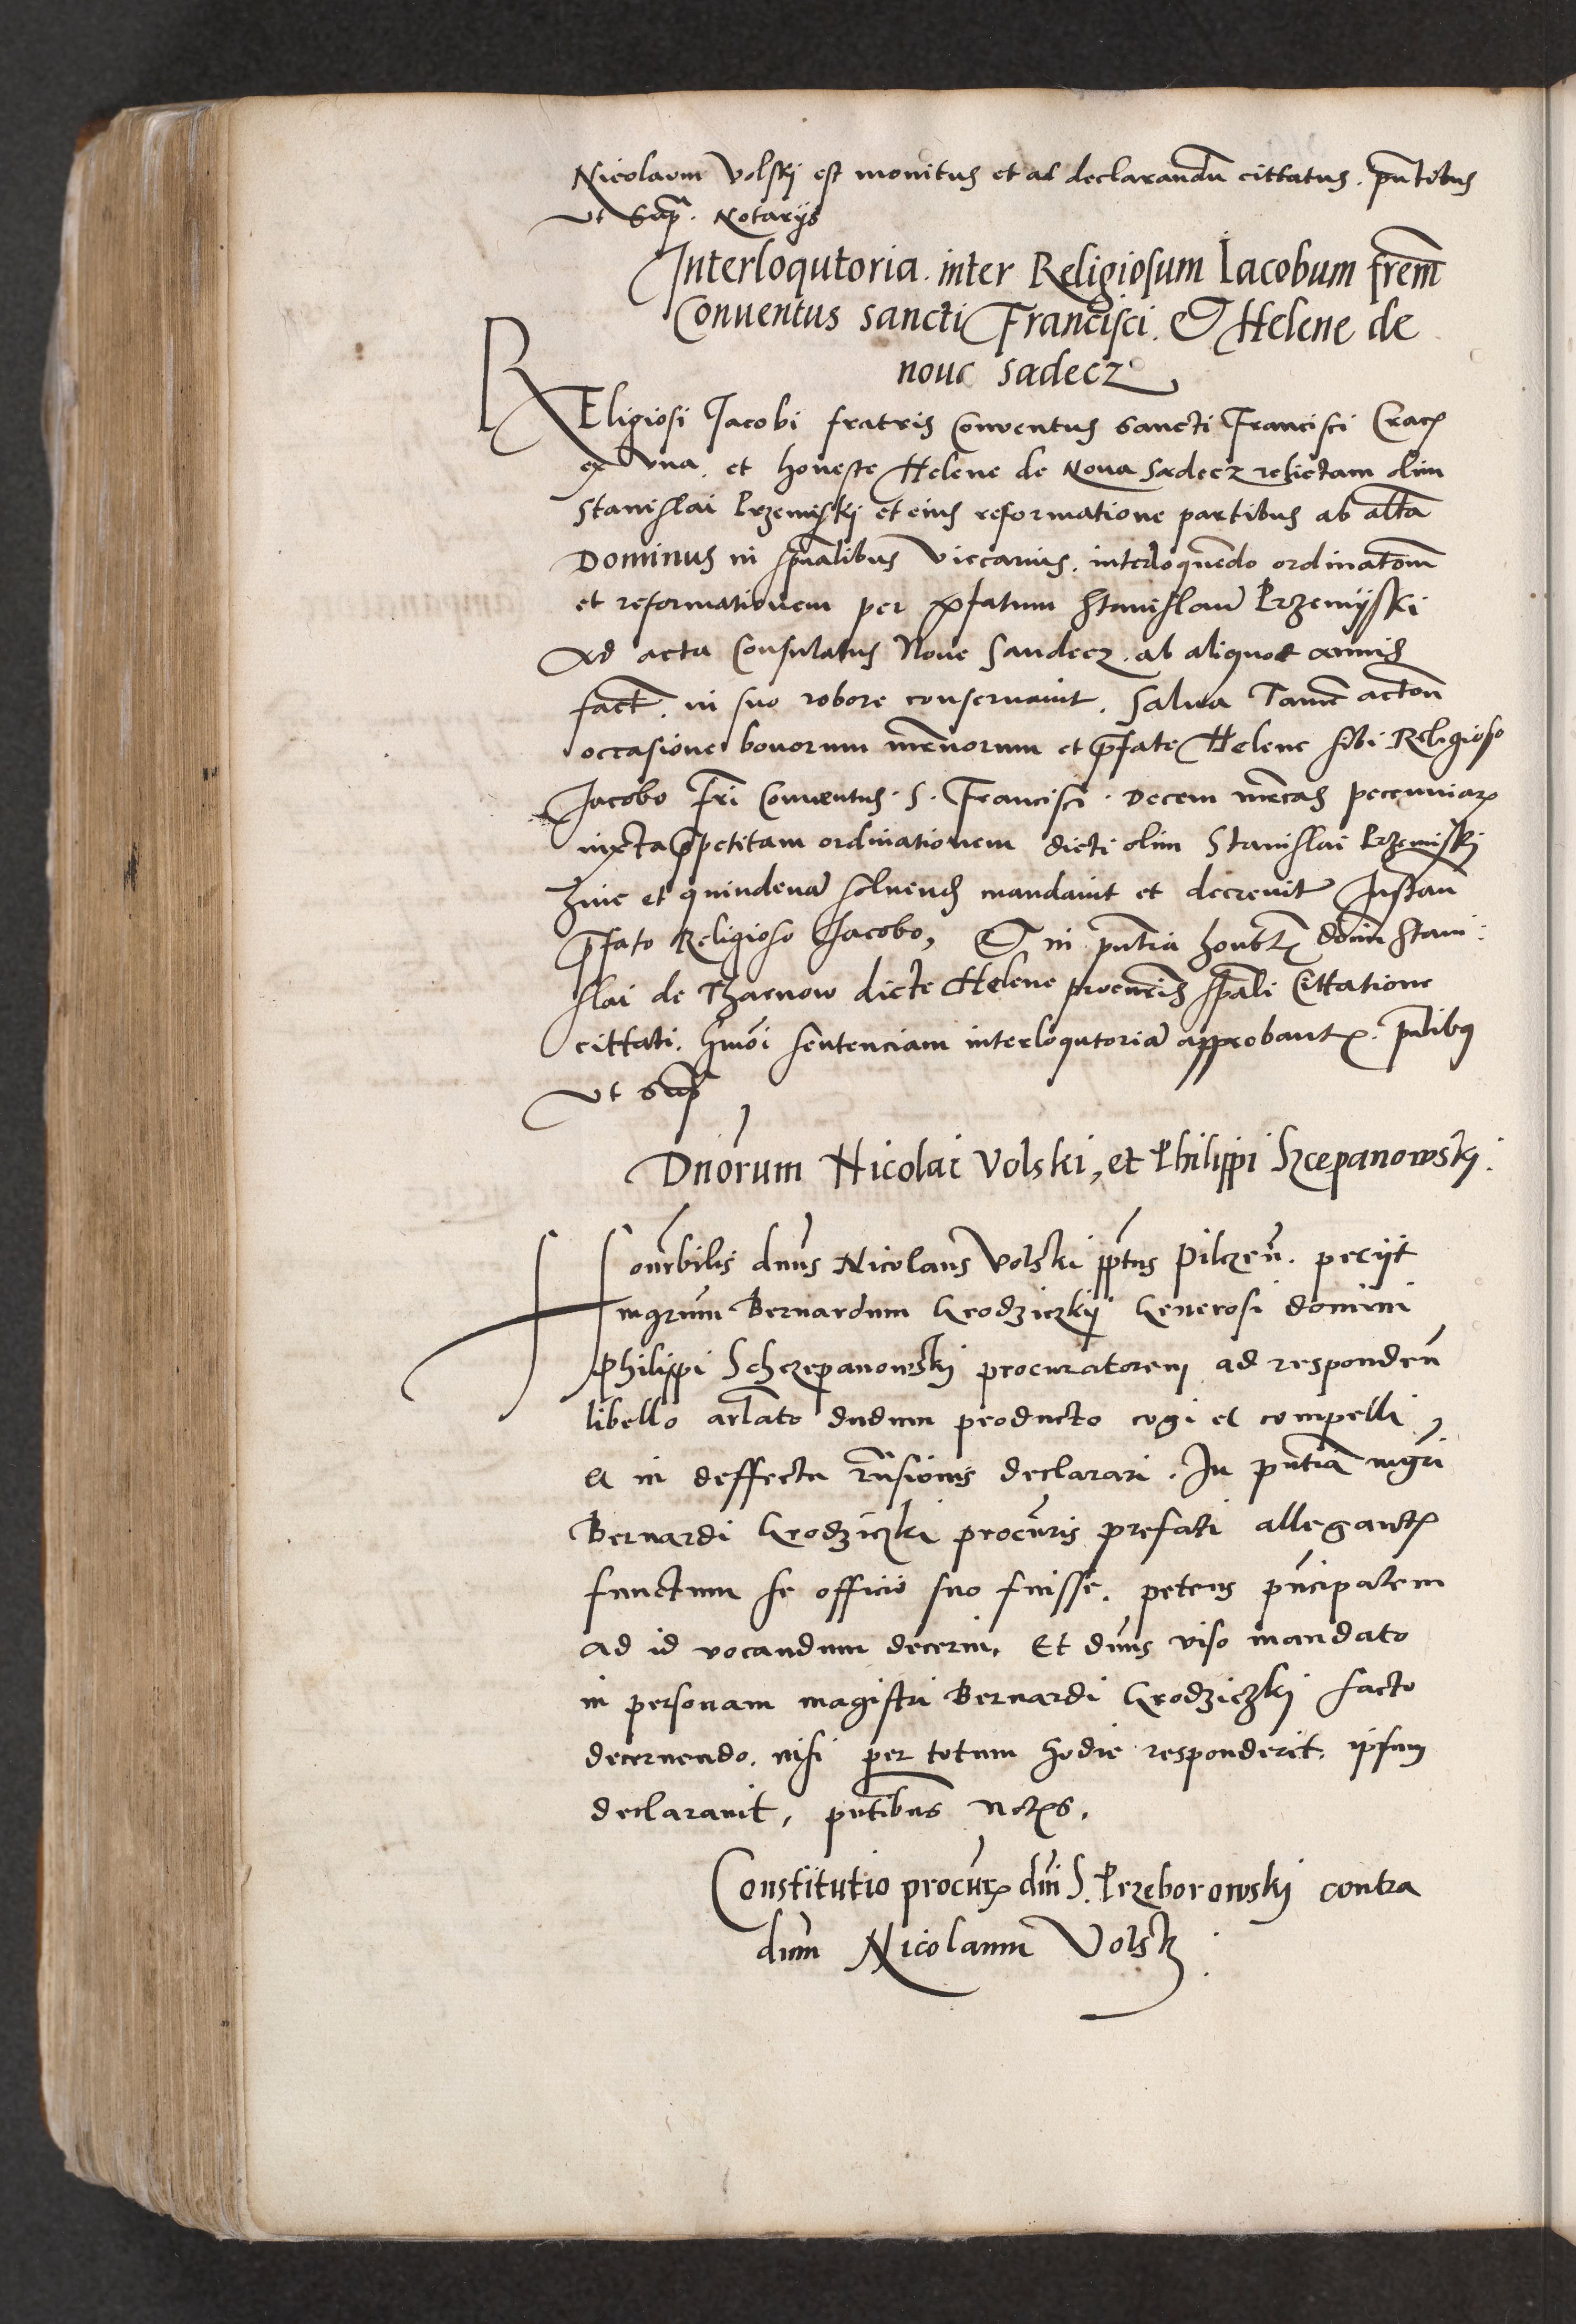 Nicolaum Volskj est monitus et ad declarandũ cittatus. pñtibus
vt supͣ. Notarijs
Interloqutoria. inter Religiosum Iacobum frẽm
Conuentus sancti Francisci. Et Helene de
noue sadecz
REligiosi Jacobi fratris Conuentus sancti Francisci Crac̃
ex vna. et honeste Helene de Noua Sadecz relictam olim
Stanislai Przemiskj et eius reformatione partibus ab alt̃a
Dominus in sp̃ualibus Viccarius. interloquendo ordinatõm
et reformationem per p̃fatum Stanislaũ Przemijski
Ad acta Consulatus Noue Sandecz. ab aliquot annis
fact̃. in suo robore conseruauit. Salua Tamẽ actõn
occasione bonorum mr̃norum et p̃fate Helene sibi Religioso
Jacobo fr̃i Conuentus. S. Francisci. Decem mr̃cas pecunniar̃
iuxta p̃petitam ordinationem dicti olim Stanislai Przemiskj
hinc et quindenã soluend̃ mandauit et decreuit Instañ
p̃fato Religioso Jacobo, Et in pñtia honbl̃ dom̃i Stani:
slai de Tharnow dicte Helene procur̃is sp̃ali Cittatione
cittati. hmõi sentenciam interloqutoriã approbant̃. pñtibus
vt sup̃
Dñorum Nicolai Volski, et Philippi Szcepanowskj.
Honr̃bilis dñus Nicolaus Volski pp̃tus Pilczeñ. pecijt
mgr̃um Bernardum Grodziczkij Generosi domini
Philippi Schczepanowskj procuratorem ad respondeñ
libello arl̃ato dudum producto cogi et compelli,
Et in deffectu rñsionis declarari. In pñtia mgr̃i
Bernardi Grodziczki procur̃is prefati allegant̃
functum se officio suo fuisse. petens pñcipalem
ad id vocandum decerni. Et dñus viso mandato
in personam magistri Bernardi Grodziczkj facto
decernendo. nisi per totum hodie responderit. ipsum
declarauit, pñtibus not̃s.
Constitutio procur̃ dñi S. Przeborowskj contra
dũm Nicolaum Volsk